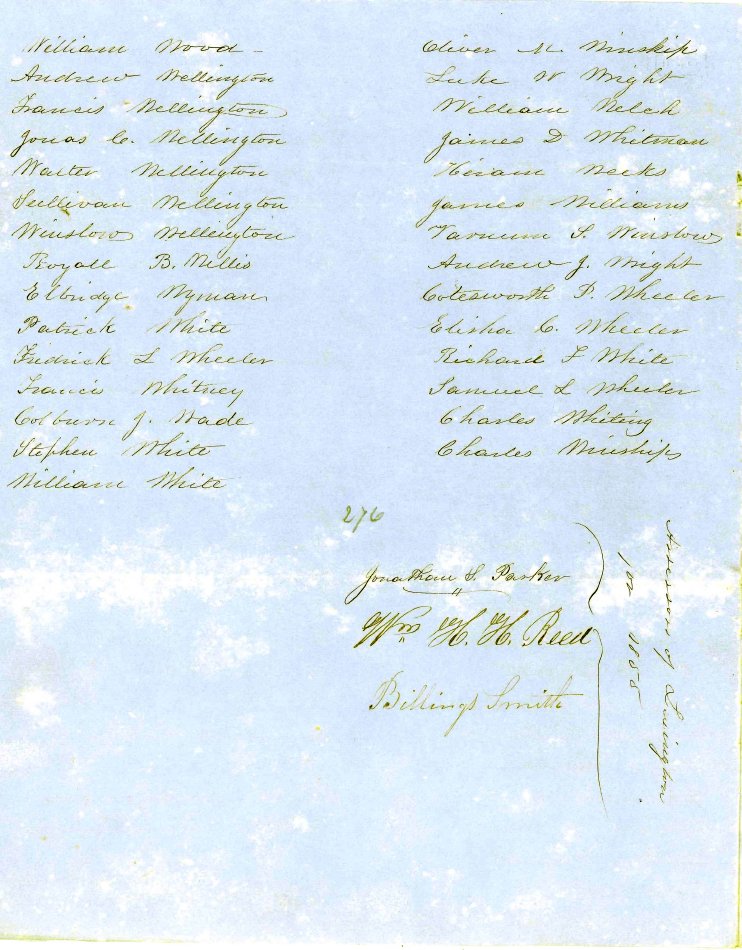 William Wood
Andrew Wellington
Francis Wellington
Jonas C. Wellington
Walter Wellington
Sullivan Wellington
Winslow Wellington
Royall B. Willis
Elbridge Wyman
Patrick White
Fredrick L Wheeler
Francis Whitney
Colburn J. Wade
Stephen White
William White
Oliver M. Winship
Luke W Wright
William Welch
James D Whitman
Hiram Weeks
James Williams
Varnum S. Winslow
Andrew J. Wright
Cotesworth P. Wheeler
Elisha C. Wheeler
Richard F White
Samuel L Wheeler
Charles Whiting
Charles Winship
276
Jonathan S. Parker
Wm H. H. Reed
Billings Smith
Assessors of Lexington
for 1855